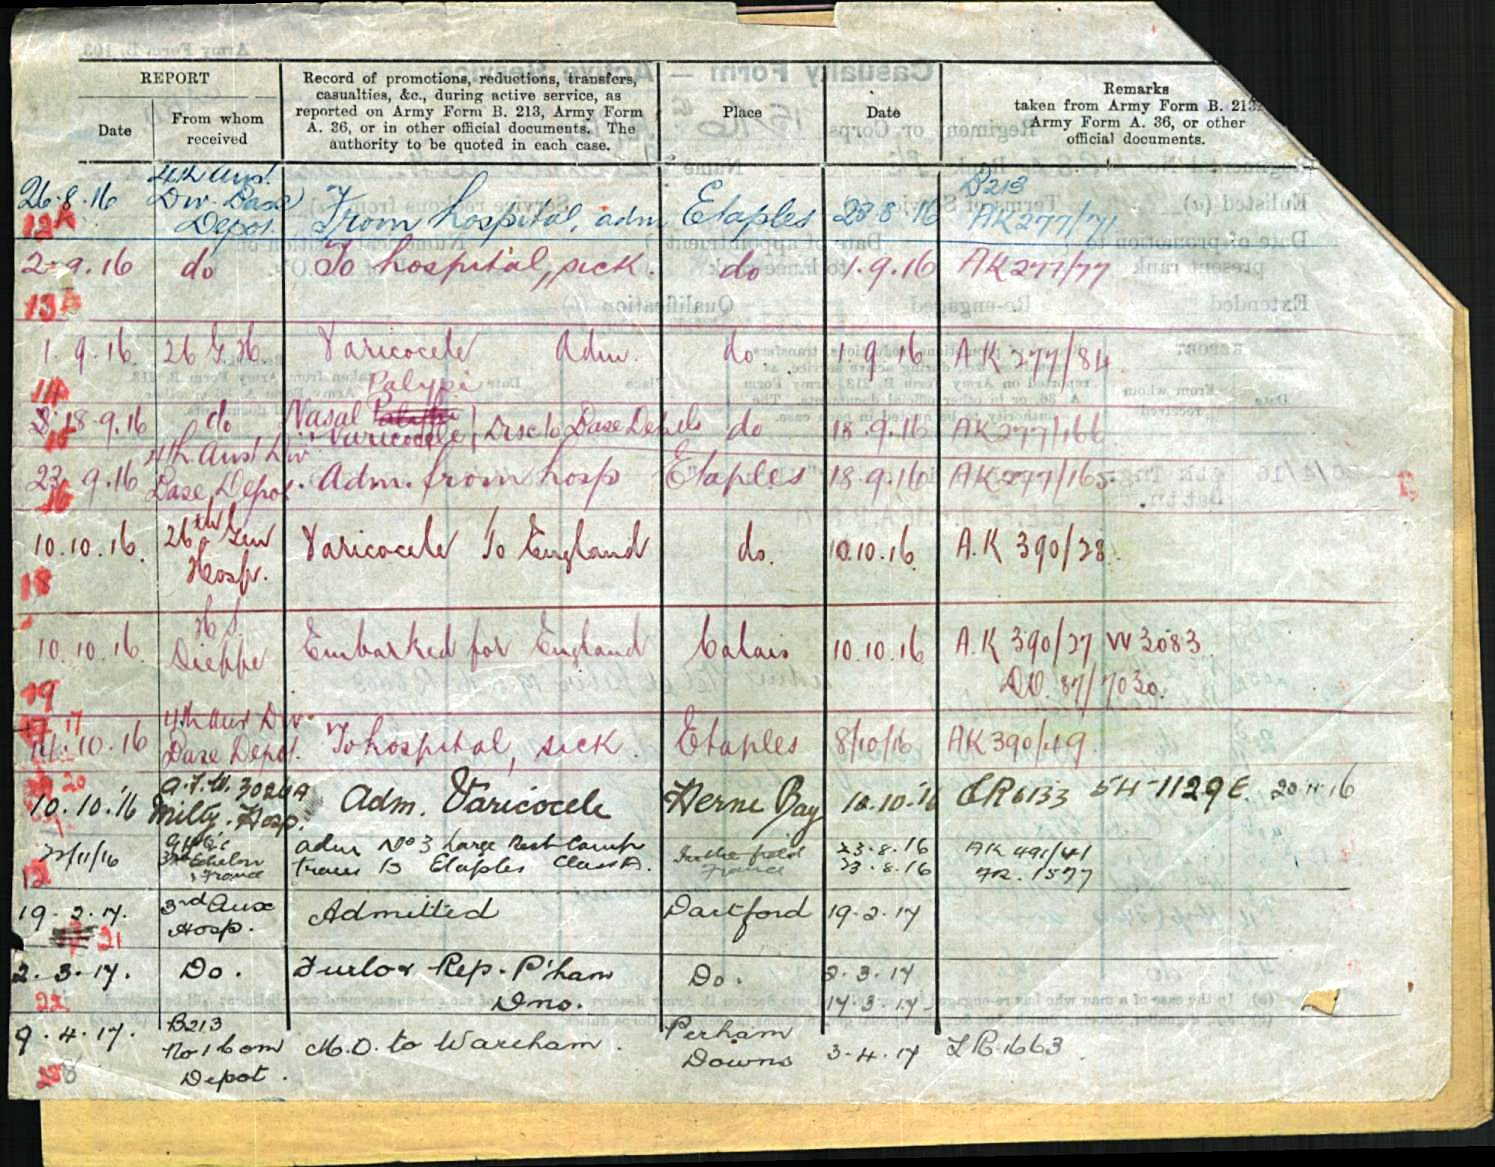 REPORT
Date
From whom received
Record of promotions, reductions, transfers, casualties, &c., during active service, as reported on Army Form B. 213, Army Form A. 36, or in other official documents. The authority to be quoted in each case.
Place
Date
Remarks
taken from Army Form B. 213, Army Form A. 36, or other official documents.
26.8.16 4th Aust. Div. Base Depot. From hospital, adm Etaples 23 8 16 B213 AK277/71
12A
2-9.16 do To hospital, sick. do 1.9.16 AK277/77
13A
1.9.16 26 G.H. Varicocele Adm. do 1.9.16 AK 277/84
14
18.9.16 do Nasal Polypi Varicocele Disc to Base Details do 18.9.16 AK277/166
15
23.9.16 4th Aust Div Base Depot. Adm. from hosp Etaples 18.9.16 AK277/165
16
10.10.16. 26th Gen Hosp. Varicocele To England do. 10.10.16. A.K 390/28.
18
10.10.16. H.S. Dieppe Embarked for England Calais 10.10.16 A.K 390/27 W3083
19
17
10.16 4th Aust Div Base Depot. To hospital, sick. Etaples 8/10/16 AK390/49.
20
10.10.16 Milty. Hosp. Adm. Varicocele Herne Bay 10.10.16 CR6133 54-1129E 20.11.16
22/11/16 3rd Echelon France adm No 3 Large Rest Camp In the field France 23.8.16 AK 491/41
12
trans to Etaples Class A. 23.8.16
19.2.17. 3rd Aux Hosp. Admitted Dartford 19.2.17
21
2.3.17. Do. Furlo & Rep. P'ham Do. 2.3.17
22
Dno. 17.3.17
9.4.17. B213 No 1 Com Depot. M.D. to Wareham. Perham Downs 3.4.17 LR 1663
23